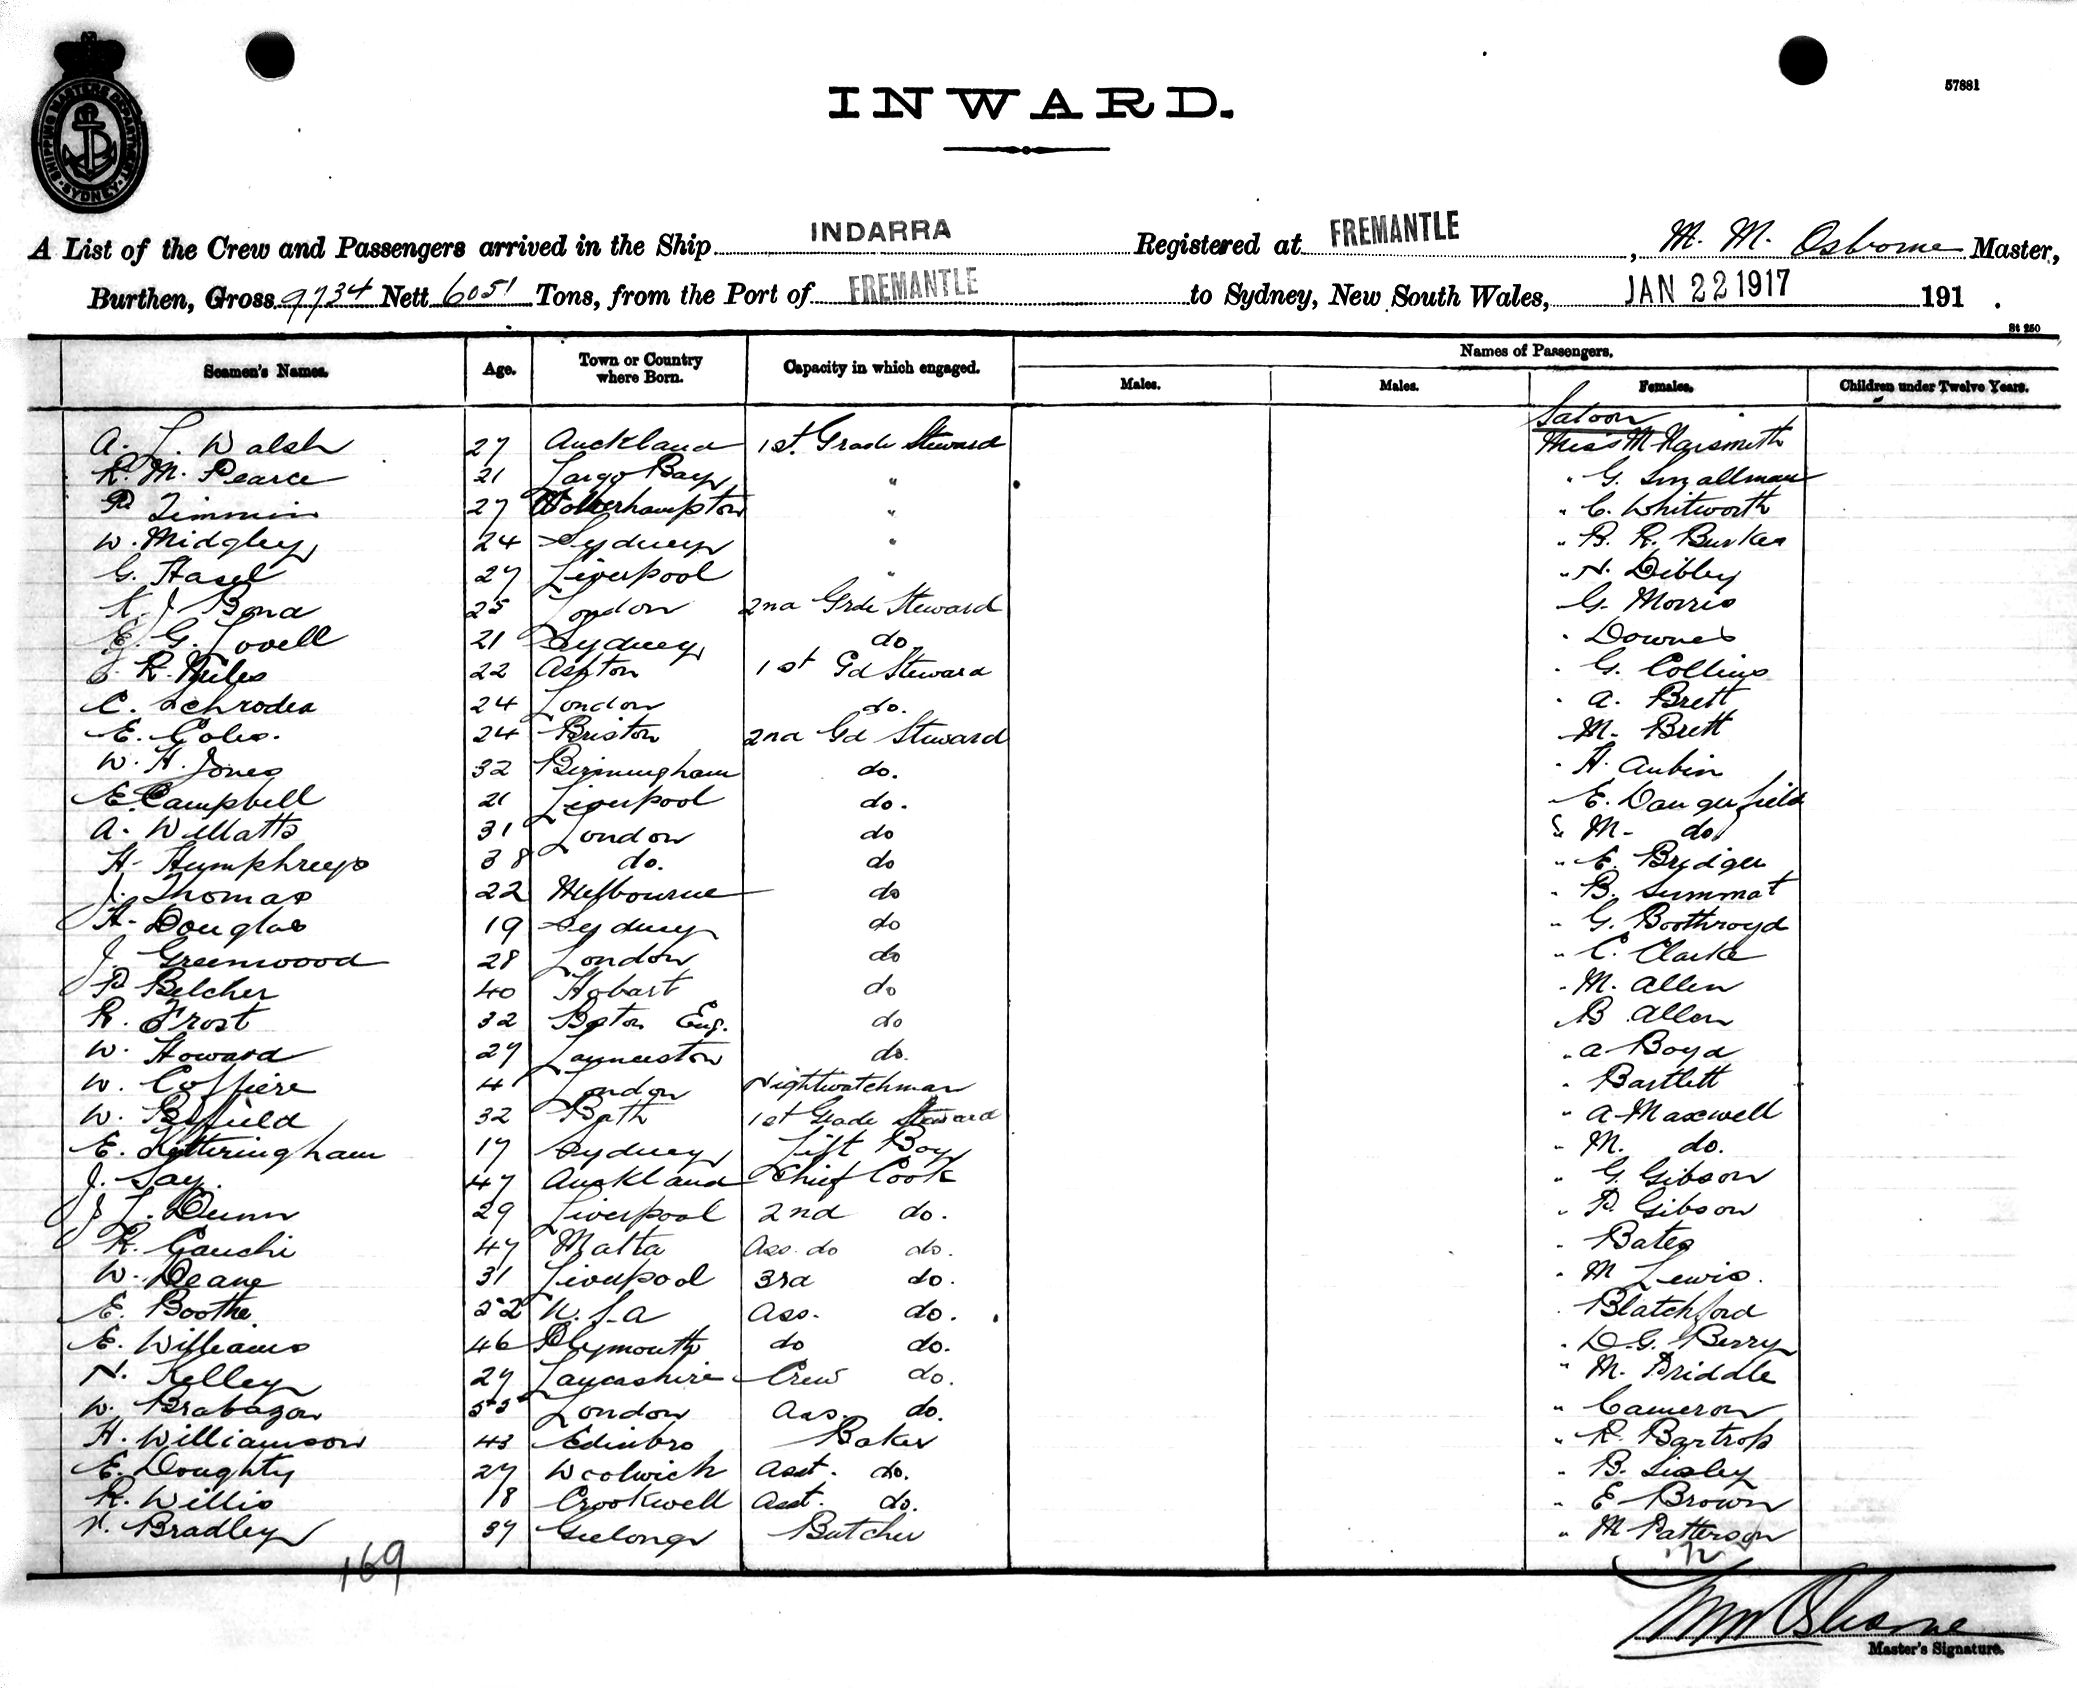 SHIPPING MASTERS DEPARTMENT
SYDNEY
INWARD.
57881
A List of the Crew and Passengers arrived in the Ship INDARRA Registered at FREMANTLE, M. M. Osborne Master,
Burthen, Gross 9734 Nett 6051 Tons, from the Port of FREMANTLE to Sydney, New South Wales, JAN 22 1917 191 .
St 250
Seamen's Names. Age. Town or Country where Born. Capacity in which engaged. Names of Passengers.
Males. Males. Females. Children under Twelve Years.
Saloon
A. L. Walsh 27 Auckland 1st. Grade Steward Miss M Naismith
R. M. Pearce 21 Largo Bay " " G. Smallman
P Timmin 27 Wolverhampton " " C. Whitworth
W. Midgley 24 Sydney " " B. R.
G. Hasel 27 Liverpool " " N. Dibley
J. Bond 25 London 2nd Grde Steward G. Morris
E. G. Lovell 21 Sydney do " Downes
J. R. 22 Ashton 1st Gd Steward " G. Collins
C. Schroder 24 London do. " A. Brett
E. Coles. 24 Briston 2nd Gd Steward M. Brett
W. H. Jones 32 Birmingham do. " H. Aubin
E. Campbell 21 Liverpool do. E. Daugerfield
A. Willatts 31 London do & M. do
H. Humphreys 38 do. do " E. Bridger
J. Thomas 22 Melbourne do " B. Summat
A. Douglas 19 Sydney do " G. Boothroyd
J. Greenwood 28 London do " C. Clarke
P Belcher 40 Hobart do " M. Allen
R. Frost 32 Boston Eng. do B Allen
W. Howard 27 Launceston do. " A Boyd
W. Coffiere 41 London Nightwatchman " Bartlett
W. Byfield 32 Bath 1st Grade Steward " A Maxwell
E. Kitteringham 17 Sydney Lift Boy " M. do.
J. Say. 47 Auckland Chief Cook " G. Gibson
J L. Dunn 29 Liverpool 2nd do. " P. Gibson
R. Gauchi 47 Malta Ass. do do. " Bates
W. Deane 31 Liverpool 3rd do. " M Lewis.
E. Boothe. 52 U.S.A Ass. do. Blatchford
E. Williams 46 Plymouth do do. " D. G. Berry
N. Kelley 27 Lancashire Crew do. " M. Briddle
W. Brabazon 55 London Ass. do. " Cameron
H. Williamson 43 Edinbro Baker " R. Bartrop
E. Doughty 27 Woolwich Asst. do. " B. Sisley
R. Willis 18 Crookwell Asst. do. " E Brown
Bradley 37 Geelong Butcher " M Patterson
169
M M Osborne
Master's Signature.